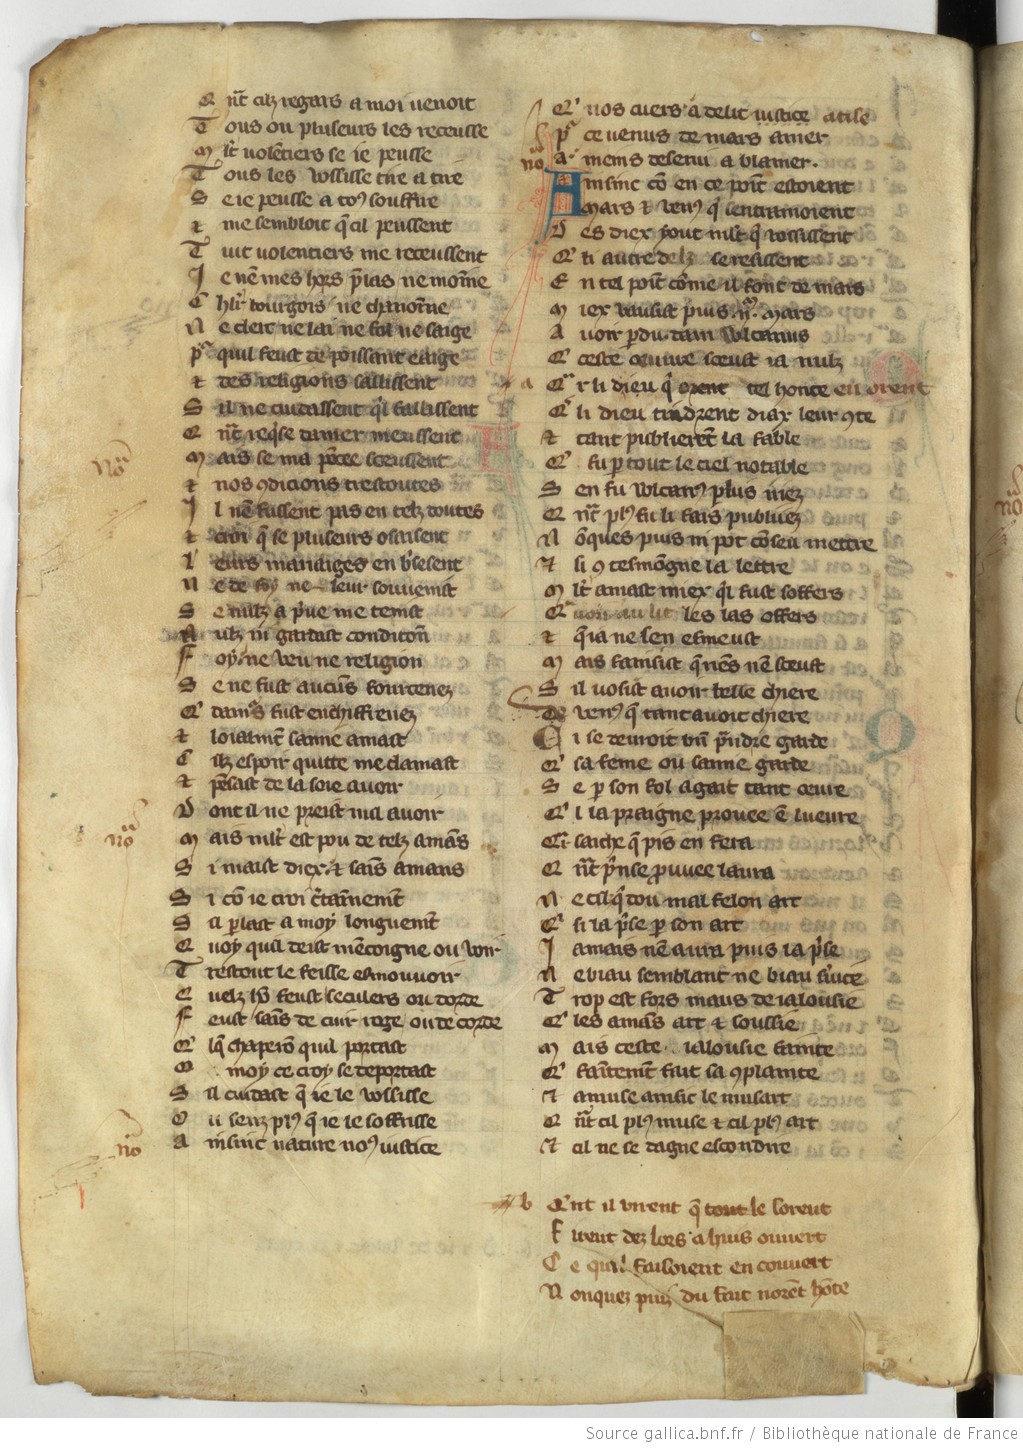 Q̃nt cilz regars a moi venoit
Tous ou pluseurs les receusse
Ml't volentiers se ie peusse
Tous les vosisse tire a tire
Se ie peusse a to9 souffire
Et me sembloit q̃ cil peussent
Tuit volentiers me receussent
Ie nẽ mes hors p̃las ne moĩne
Chl'r bourgois ne chanoĩne
Ne clerc ne lai ne fol ne saige
Pͣ quil feust de poissant eaige
Et des religions saillissent
Sil ne cuidassent q̃l faillissent
Q̃nt reqͥse damer meussent
Mais se ma pẽcee sceussent
Et nos ꝯdicions trestoutes
Il nẽ fussent pas en telz doutes
Et croi q̃ se pluseurs osaisent
Leurs mariaiges en b'sesent
Ne de foy ne leur souvenist
Se nulz a p̃ve me tenist
Nulz ni gardast condicoñ
Foy ne veu ne religion
Se ne fust aucũs fourcenez
Q' dam's fust enchiffrenez
Et loialmẽt samie amast
Cilz espoir quitte me clamast
Et pẽsast de la soie avoir
Dont il ne preist nul avoir
Mais ml't est pou de telz amãs
Si maist diex ⁊ saĩs amans
Si cõ ie croi c̃tainnemẽt
Sil ꝑlast a moy longuemẽt
Q' voy quil deist mẽcoigne ou voir
Trestout le feisse esmouvoir
Q' velz hõ feust seculers ou dordre
Feust saĩs de cuir roge ou de corde
Q' lq̃ chaperõ quil portast
O moy ce croy se deportast
Sil cuidast q̃ ie le vosisse
Ou senz pl9 q̃ ie le soffrisse
Ainsinc nature no9 iustice
Q' nos cuers a delit iustice atise
Pͣ ce venus de mars amer
A mems deservi a blamer.
Ainsinc cõ en ce poĩt estoient
Mars ⁊ ven9 q̃ sentramoient
Des diex y out ml't q̃ vosissent
Q' li autre delz se resissent
En tel poĩt cõme il font de mars
Miex vausist puis .ijᵐ. mars
Avoir ꝑdu dam wlcanus
Q' ceste œuvre sceust ia nulz
a Cͣr li dieu q̃ orent tel honte en orent
Q̃ li dieu tindrent diax leur ꝯte
Et tant publierẽt la fable
Q' fu ꝑ tout le ciel notable
Sen fu wlcan9 plus iriez
Q̃nt pl9 fu li fais publiez
Nõques puis ni pot cõseil mettre
Et si ꝯ tesmõgne la lettre
Ml't amast miex q̃l fust soffers
Q' von au lit les las offers
Et q̃ ia ne sen esmeust
Mais fainsist q̃ riẽs nẽ sceust
Sil vosist avoir belle chiere
De ven9 q̃ tant avoit chiere
Ci se devroit bñ p̃ndre garde
Q' sa feme ou samie garde
Se ꝑ son fol agait tant œuvre
Q' l la praigne provee ẽ lueure
Cr̃ saiche q̃ pis en fera
Q̃nt p̃nse ꝓuvee laura
Ne cil q̃ dou mal felon art
Q' si la p̃se ꝑ son art
Iamais nẽ aura puis la p̃se
Ne biau semblant ne biau s'vice
Trop est fors maus de ialousie
Q' les amãs art ⁊ soussie
Mais ceste ialousie fainte
Q' faĩtemẽt fait sa ꝯplainte
Et amuse ainsic le musart
Q̃nt cil pl9 muse ⁊ cil pl9 art
Et cil ne se daigne escondire
b Q̃nt il virent q̃ tout le sorent
Firent dez lors a huis ouvert
Ce quil faisoient en couvert
Nonquez puis du fait norẽt hõte
Source gallica.bnf.fr / Bibliothèque nationale de France